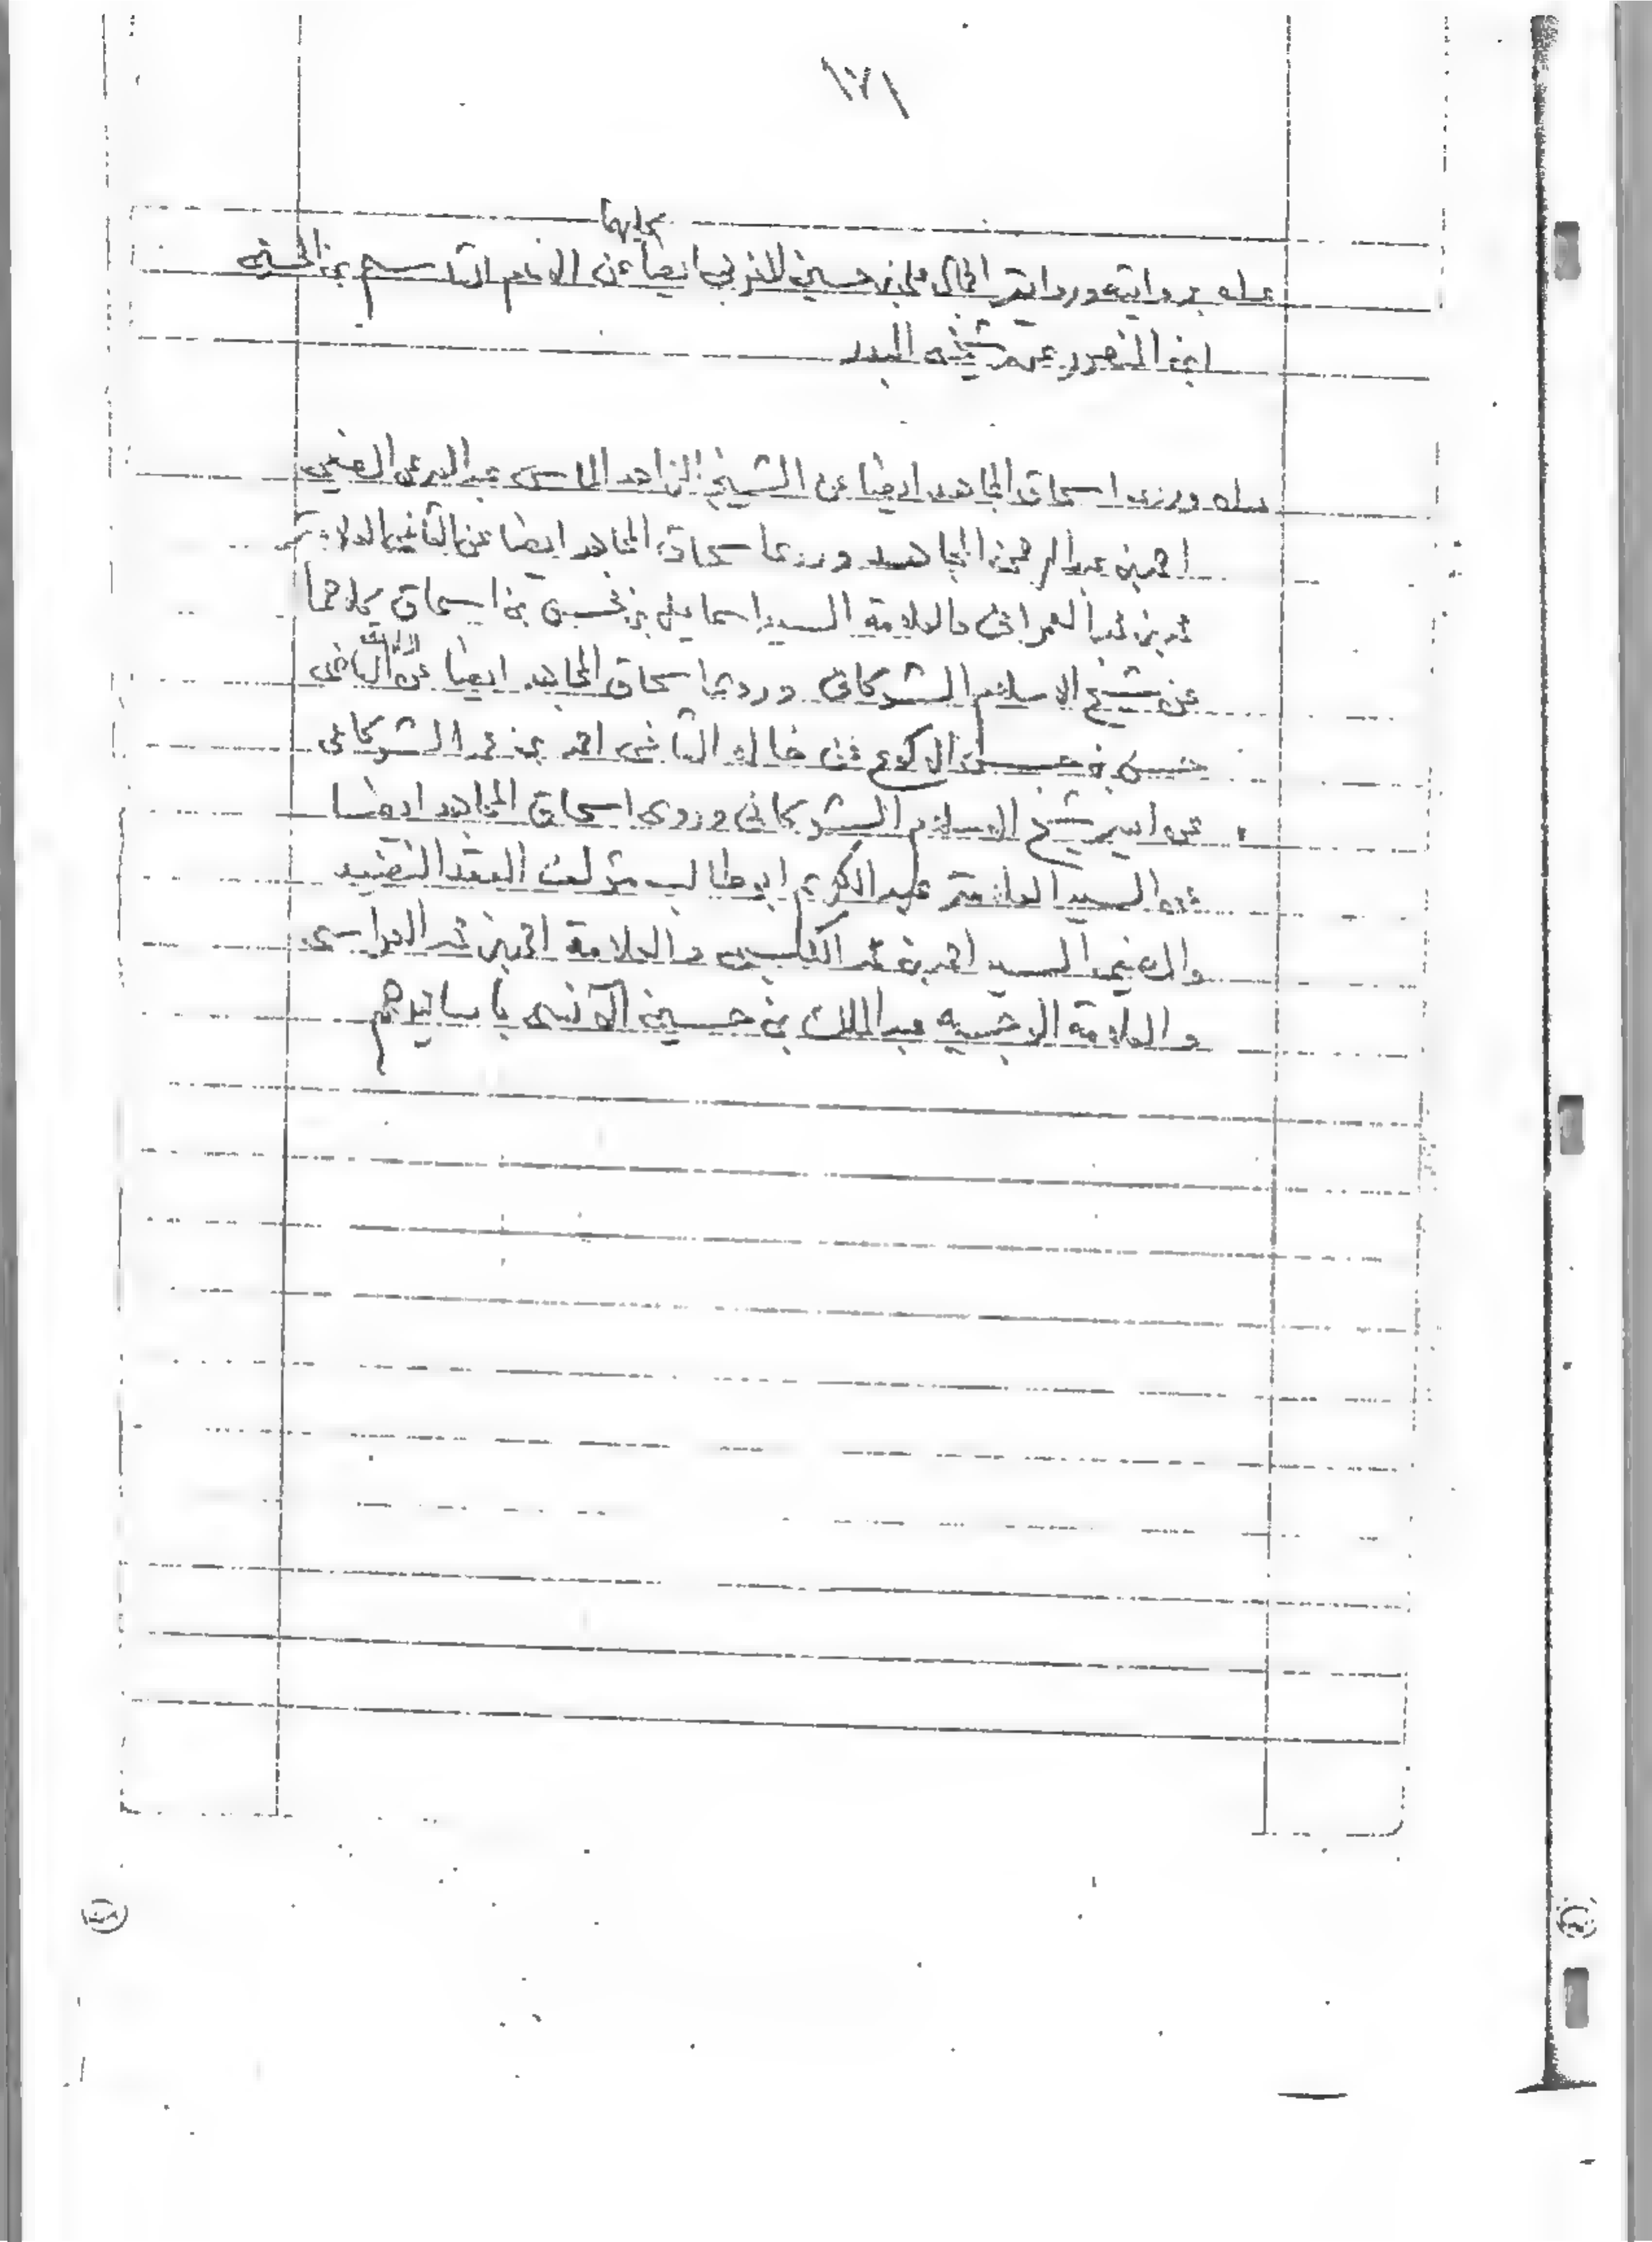 ١٧١
كليهما
بروايته ورواية الجمال علي بن حسين المغربي ايضا عن الامام القاسم بن الحسين
ابن المنصور عن شيخه البدر
وروى اسحاق المجاهد ايضا عن الشيخ الزاهد عبد الله بن الغني
احمد بن عبد الرحمن المجاهد وروى اسحاق المجاهد ايضا عن القاضي العلامة
محمد بن محمد العمراني والعلامة السيد اسماعيل بن محسن بن اسحاق كلاهما
عن شيخ الاسلام الشوكاني وروى اسحاق المجاهد ايضا عن القاضي
حسين بن حسن الاكوع عن خاله القاضي احمد بن محمد الشوكاني
عن ابيه شيخ الاسلام الشوكاني وروى اسحاق المجاهد ايضا
عن السيد العلامة عبد الكريم ابو طالب مؤلف العقد النضيد
والسيد احمد بن محمد الكبسي والعلامة احمد بن محمد السياغي
والعلامة الوجيه عبد الملك بن حسين الآنسي باسانيدهم